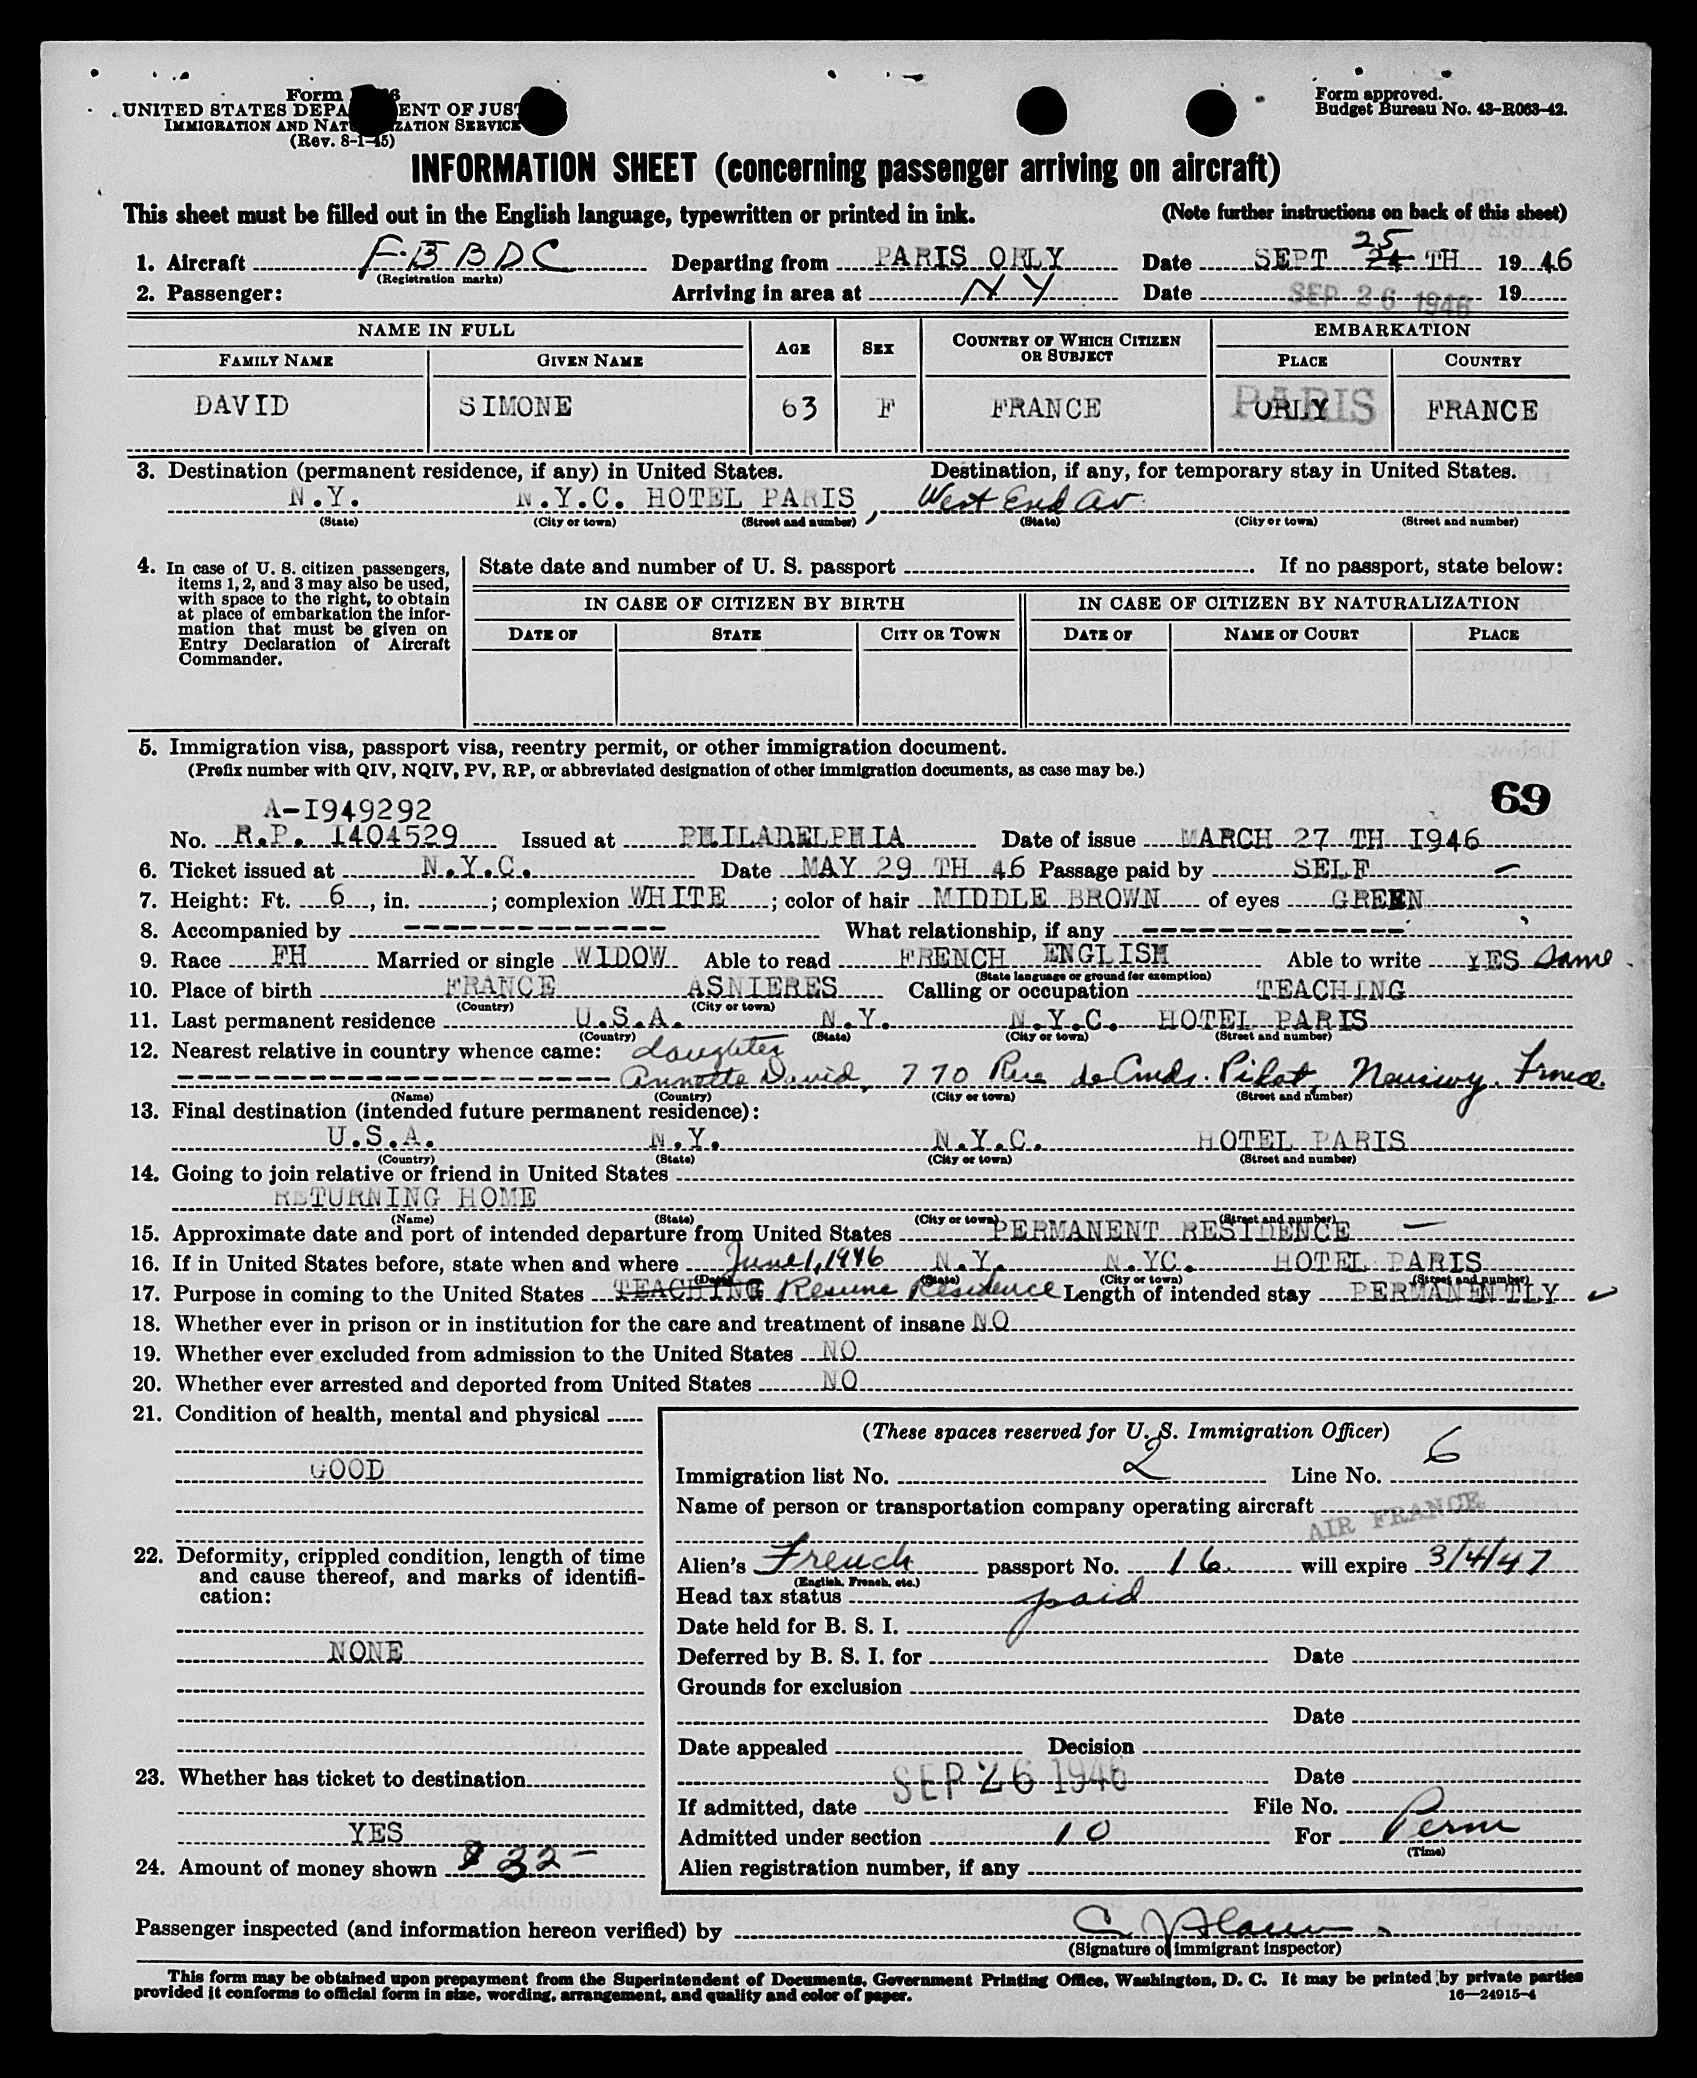 Form
UNITED STATES DEPA ENT OF JUS
IMMIGRATION AND NAT ZATION SERVICE
(Rev. 8-1-45)
Form approved.
Budget Bureau No. 43-R063-42.
INFORMATION SHEET (concerning passenger arriving on aircraft)
This sheet must be filled out in the English language, typewritten or printed in ink. (Note further instructions on back of this sheet)
1. Aircraft F-BBDC Departing from PARIS ORLY Date SEPT 25 24 TH 1946
(Registration marks)
2. Passenger: Arriving in area at NY Date SEP 26 1946 19
NAME IN FULL AGE SEX COUNTRY OF WHICH CITIZEN OR SUBJECT EMBARKATION
FAMILY NAME GIVEN NAME PLACE COUNTRY
DAVID SIMONE 63 F FRANCE PARIS ORLY FRANCE
3. Destination (permanent residence, if any) in United States. Destination, if any, for temporary stay in United States.
N.Y. N.Y.C. HOTEL PARIS, West End Av.
(State) (City or town) (Street and number) (State) (City or town) (Street and number)
4. In case of U. S. citizen passengers, items 1, 2, and 3 may also be used, with space to the right, to obtain at place of embarkation the information that must be given on Entry Declaration of Aircraft Commander.
State date and number of U. S. passport If no passport, state below:
IN CASE OF CITIZEN BY BIRTH IN CASE OF CITIZEN BY NATURALIZATION
DATE OF STATE CITY OR TOWN DATE OF NAME OF COURT PLACE
5. Immigration visa, passport visa, reentry permit, or other immigration document.
(Prefix number with QIV, NQIV, PV, RP, or abbreviated designation of other immigration documents, as case may be.)
69
A-I949292
No. R.P. I404529 Issued at PHILADELPHIA Date of issue MARCH 27 TH I946
6. Ticket issued at N.Y.C. Date MAY 29 TH 46 Passage paid by SELF
7. Height: Ft. 6, in. ; complexion WHITE ; color of hair MIDDLE BROWN of eyes GREEN
8. Accompanied by -------------- What relationship, if any --------------
9. Race FH Married or single WIDOW Able to read FRENCH ENGLISH Able to write YES Same
(State language or ground for exemption)
10. Place of birth FRANCE ASNIERES Calling or occupation TEACHING
(Country) (City or town)
11. Last permanent residence U.S.A. N.Y. N.Y.C. HOTEL PARIS
(Country) (State) (City or town) (Street and number)
12. Nearest relative in country whence came: daughter
------------------------ Annette David, 770 Rue de France.
(Name) (Country) (City or town) (Street and number)
13. Final destination (intended future permanent residence):
U.S.A. N.Y. N.Y.C. HOTEL PARIS
(Country) (State) (City or town) (Street and number)
14. Going to join relative or friend in United States
RETURNING HOME
(Name) (State) (City or town) (Street and number)
15. Approximate date and port of intended departure from United States PERMANENT RESIDENCE
16. If in United States before, state when and where June 1, 1946 N.Y. N.YC. HOTEL PARIS
(Date) (State) (City or town) (Street and number)
17. Purpose in coming to the United States TEACHING Resume Residence Length of intended stay PERMANENTLY
18. Whether ever in prison or in institution for the care and treatment of insane NO
19. Whether ever excluded from admission to the United States NO
20. Whether ever arrested and deported from United States NO
21. Condition of health, mental and physical
GOOD
22. Deformity, crippled condition, length of time and cause thereof, and marks of identification:
NONE
23. Whether has ticket to destination
YES
24. Amount of money shown $ 32-
(These spaces reserved for U. S. Immigration Officer)
Immigration list No. 2 Line No. 6
Name of person or transportation company operating aircraft
AIR FRANCE
Alien's French passport No. 16 will expire 3/4/47
(English, French, etc.)
Head tax status paid
Date held for B. S. I.
Deferred by B. S. I. for Date
Grounds for exclusion
Date
Date appealed Decision
Date
If admitted, date SEP 26 1946 File No.
Admitted under section 10 For Perm
(Time)
Alien registration number, if any
Passenger inspected (and information hereon verified) by
(Signature of immigrant inspector)
This form may be obtained upon prepayment from the Superintendent of Documents, Government Printing Office, Washington, D. C. It may be printed by private parties
provided it conforms to official form in size, wording, arrangement, and quality and color of paper. 16—24915-4